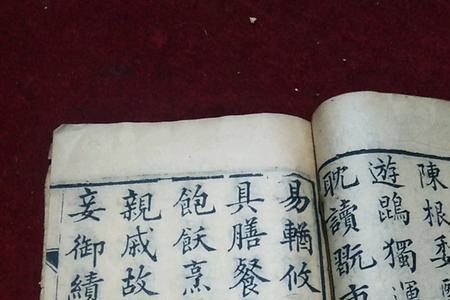 陳根委
遊鵾獨運
耽讀翫市
易輶攸
具膳餐
飽飫烹
親戚故
妾御績